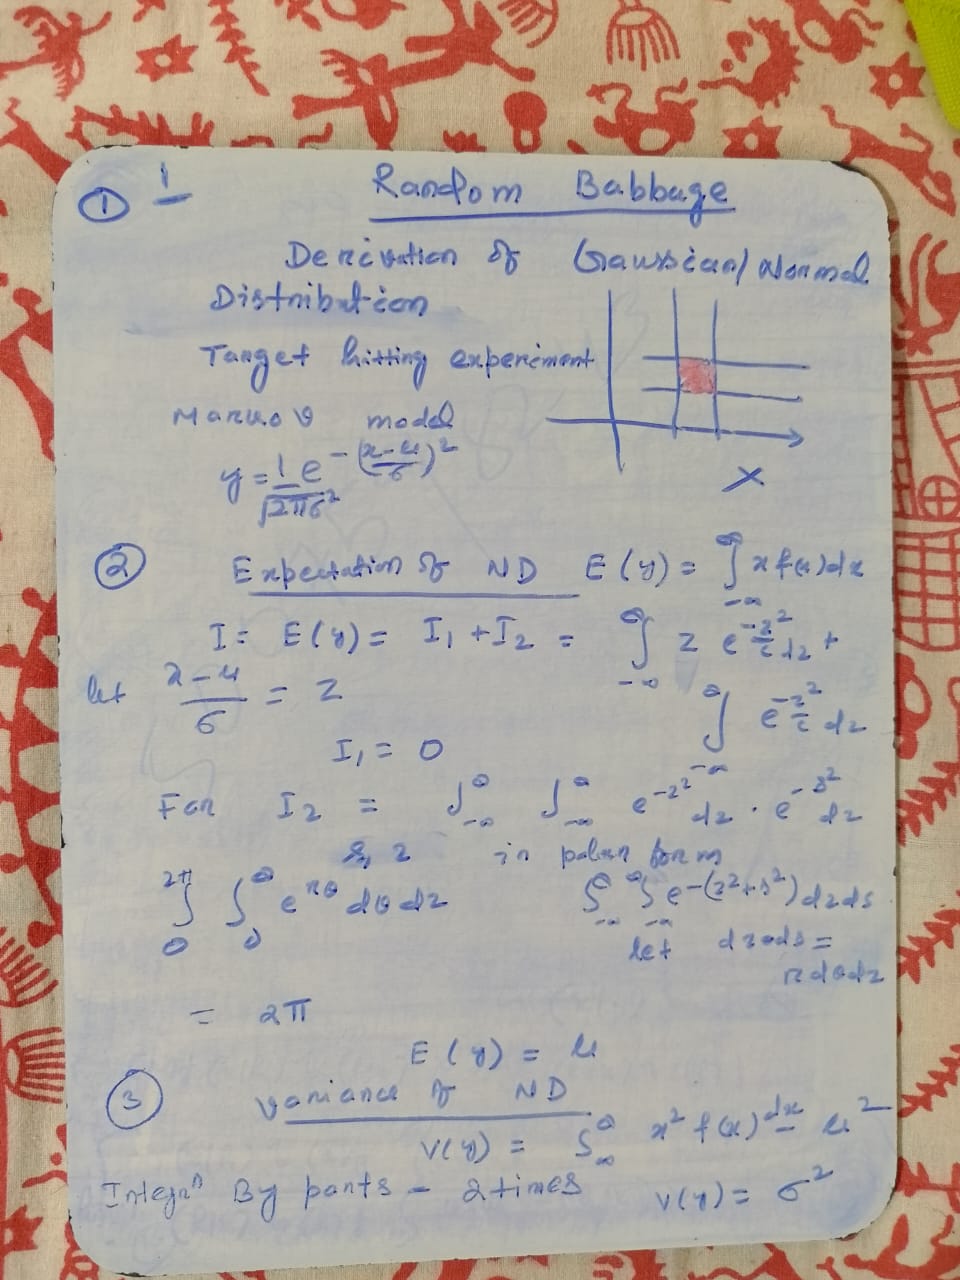 ① 1
Random Babbage
Derivation of Gaussian/Normal
Distribution
Target hitting experiment
Markov model
y = 1/√(2πσ²) e^-((x-μ)/σ)²
X
② Expectation of ND E(y) = ∫_{-∞}^{∞} x f(x) dx
I = E(y) = I₁ + I₂ = ∫_{-∞}^{∞} z e^{-z²/2} dz +
let (x-μ)/σ = z
∫_{-∞}^{∞} e^{-z²/2} dz
I₁ = 0
For I₂ = ∫_{-∞}^{∞} ∫_{-∞}^{∞} e^{-z²} dz . e^{-s²} dz
s, z in polar form
∫_0^{2π} ∫_0^{∞} e^{rθ} dθ dz
∫_{-∞}^{∞} ∫_{-∞}^{∞} e^{-(z²+s²)} dz ds
let dz ds =
r dθ dz
= 2π
E(y) = μ
③ Variance of ND
V(y) = ∫_{∞}^{∞} x² f(x) dx - μ²
Integrⁿ By parts - 2 times V(y) = σ²